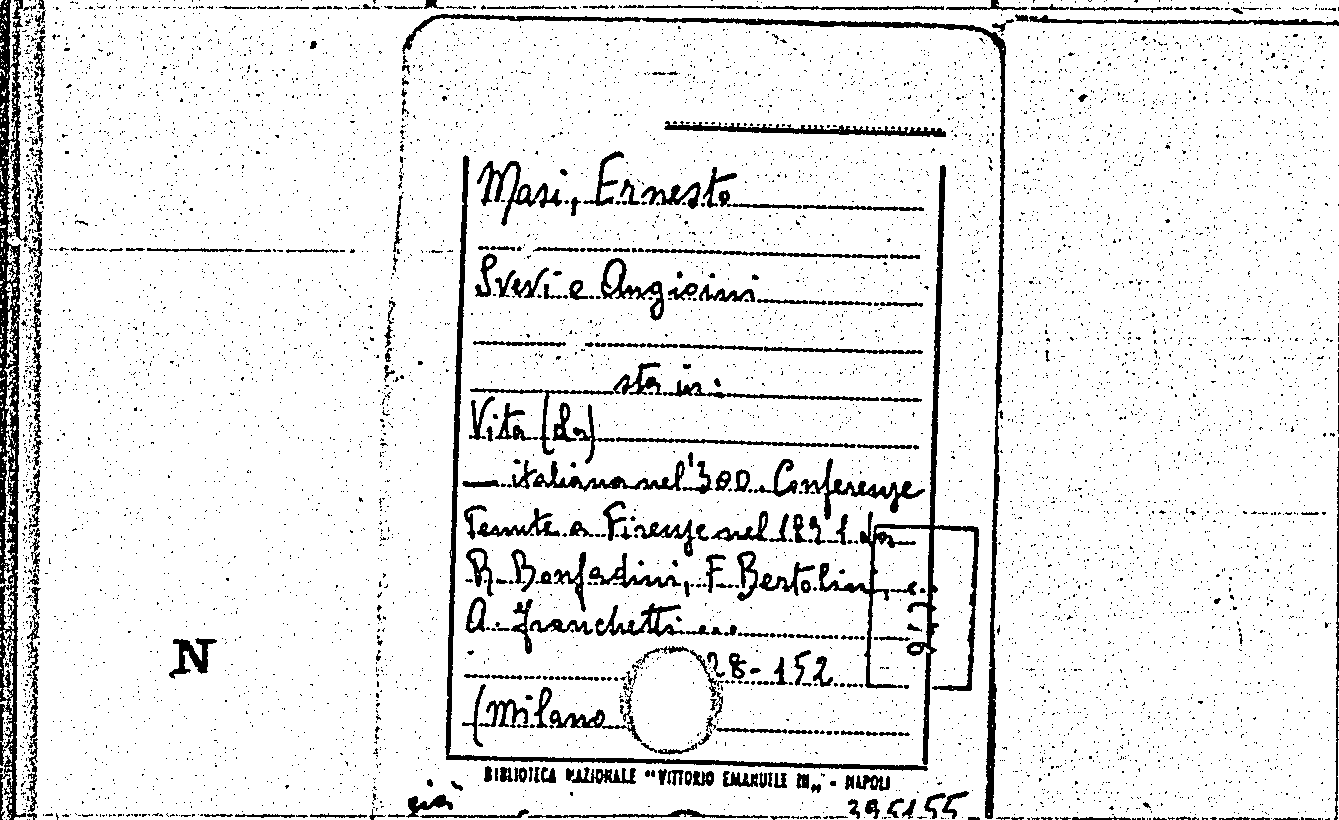 Masi, Ernesto
Svevi e Angioini
sta in:
Vita (La)
— italiana nel '300. Conferenze
Tenute a Firenze nel 1891 da
R. Bonfadini, F. Bertolini,
A. Franchetti ...
28-152
(Milano
N
BIBLIOTECA NAZIONALE "VITTORIO EMANUELE III„ - NAPOLI
395155